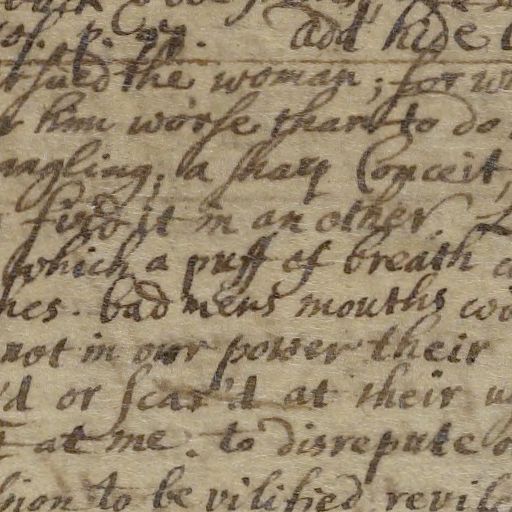 p. 27. add hide
sued the woman; for
him worse than to do
angling; a sharp Conceit,
find it in an other.
which a puff of breath
hes. bad mens mouths
not in our power their
'd or scar'd at their
at me. to disrepute
hion to be vilified revile